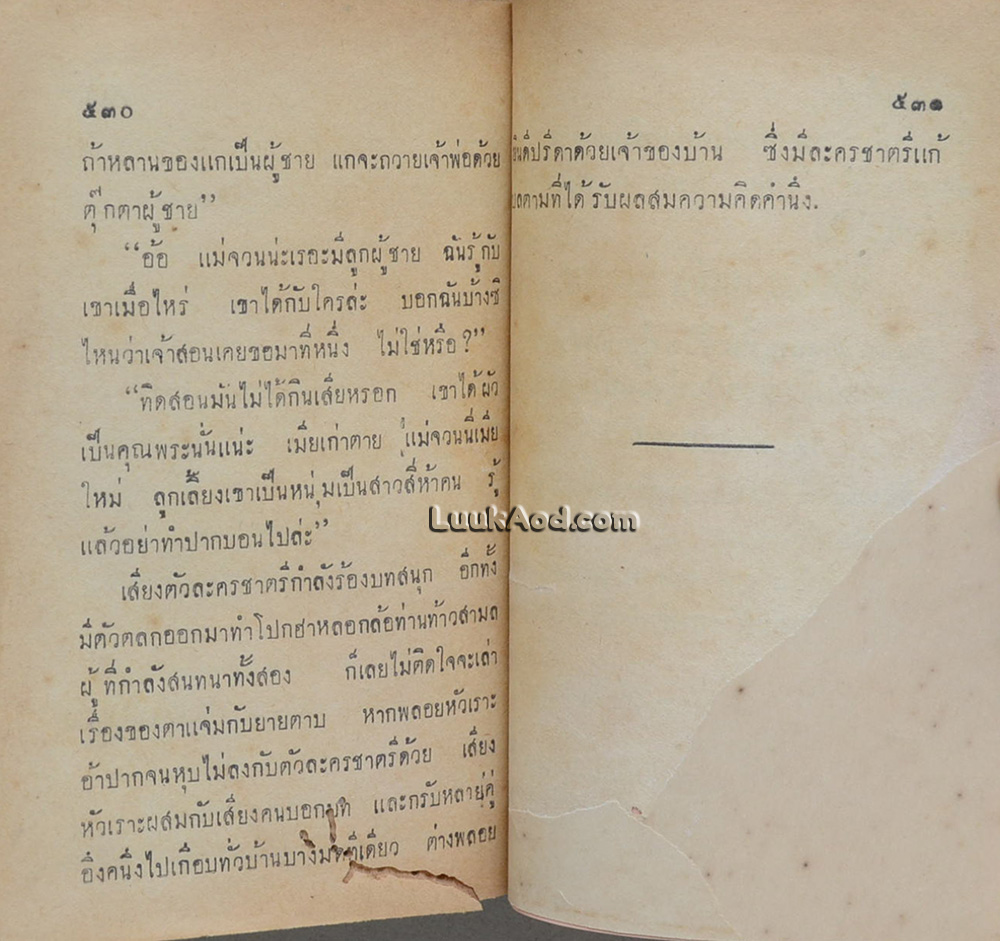 ๕๓๐
ถ้าหลานของแกเป็นผู้ชาย แกจะถวายเจ้าพ่อด้วย
ตุ๊กตาผู้ชาย”
“อ้อ แม่จวนน่ะเรอะมีลูกผู้ชาย ฉันรู้กับ
เขาเมื่อไหร่ เขาได้กับใครล่ะ บอกฉันบ้างซิ
ไหนว่าเจ้าสอนเคยขอมาทีหนึ่ง ไม่ใช่หรือ?”
“ทิดสอนมันไม่ได้กินเสียหรอก เขาได้ผัว
เป็นคุณพระนั่นแน่ะ เมียเก่าตาย แม่จวนนี่เมีย
ใหม่ ลูกเลี้ยงเขาเป็นหนุ่มเป็นสาวสี่ห้าคน รู้
แล้วอย่าทำปากบอนไปล่ะ”
เสียงตัวละครชาตรีกำลังร้องบทสนุก อีกทั้ง
มีตัวตลกออกมาทำโปกฮาหลอกล้อท่านท้าวสามล
ผู้ที่กำลังสนทนาทั้งสอง ก็เลยไม่ติดใจจะเล่า
เรื่องของตาแจ่มกับยายตาบ หากพลอยหัวเราะ
อ้าปากจนหุบไม่ลงกับตัวละครชาตรีด้วย เสียง
หัวเราะผสมกับเสียงคนบอกบท และกรับหลายคู่
อึงคนึงไปเกือบทั่วบ้านบาง ทีเดียว ต่างพลอย
๕๓๑
ยินดีปรีดาด้วยเจ้าของบ้าน ซึ่งมีละครชาตรีแก้
บลตามที่ได้รับผลสมความคิดคำนึง.
LuukAod.com